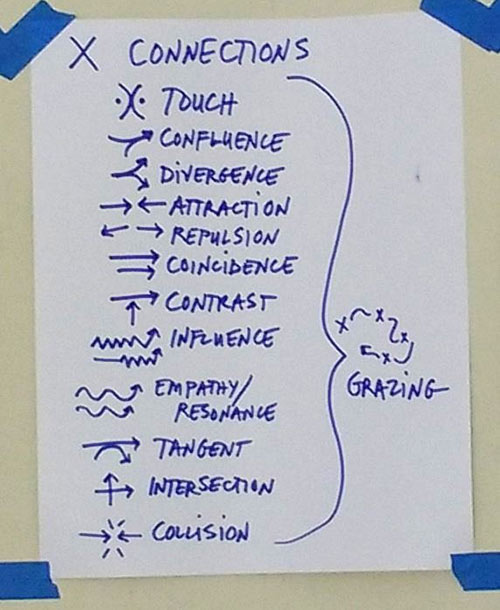 X CONNECTIONS
TOUCH
CONFLUENCE
DIVERGENCE
ATTRACTION
REPULSION
COINCIDENCE
CONTRAST
INFLUENCE
EMPATHY/
RESONANCE
TANGENT
INTERSECTION
COLLISION
x x x x
GRAZING